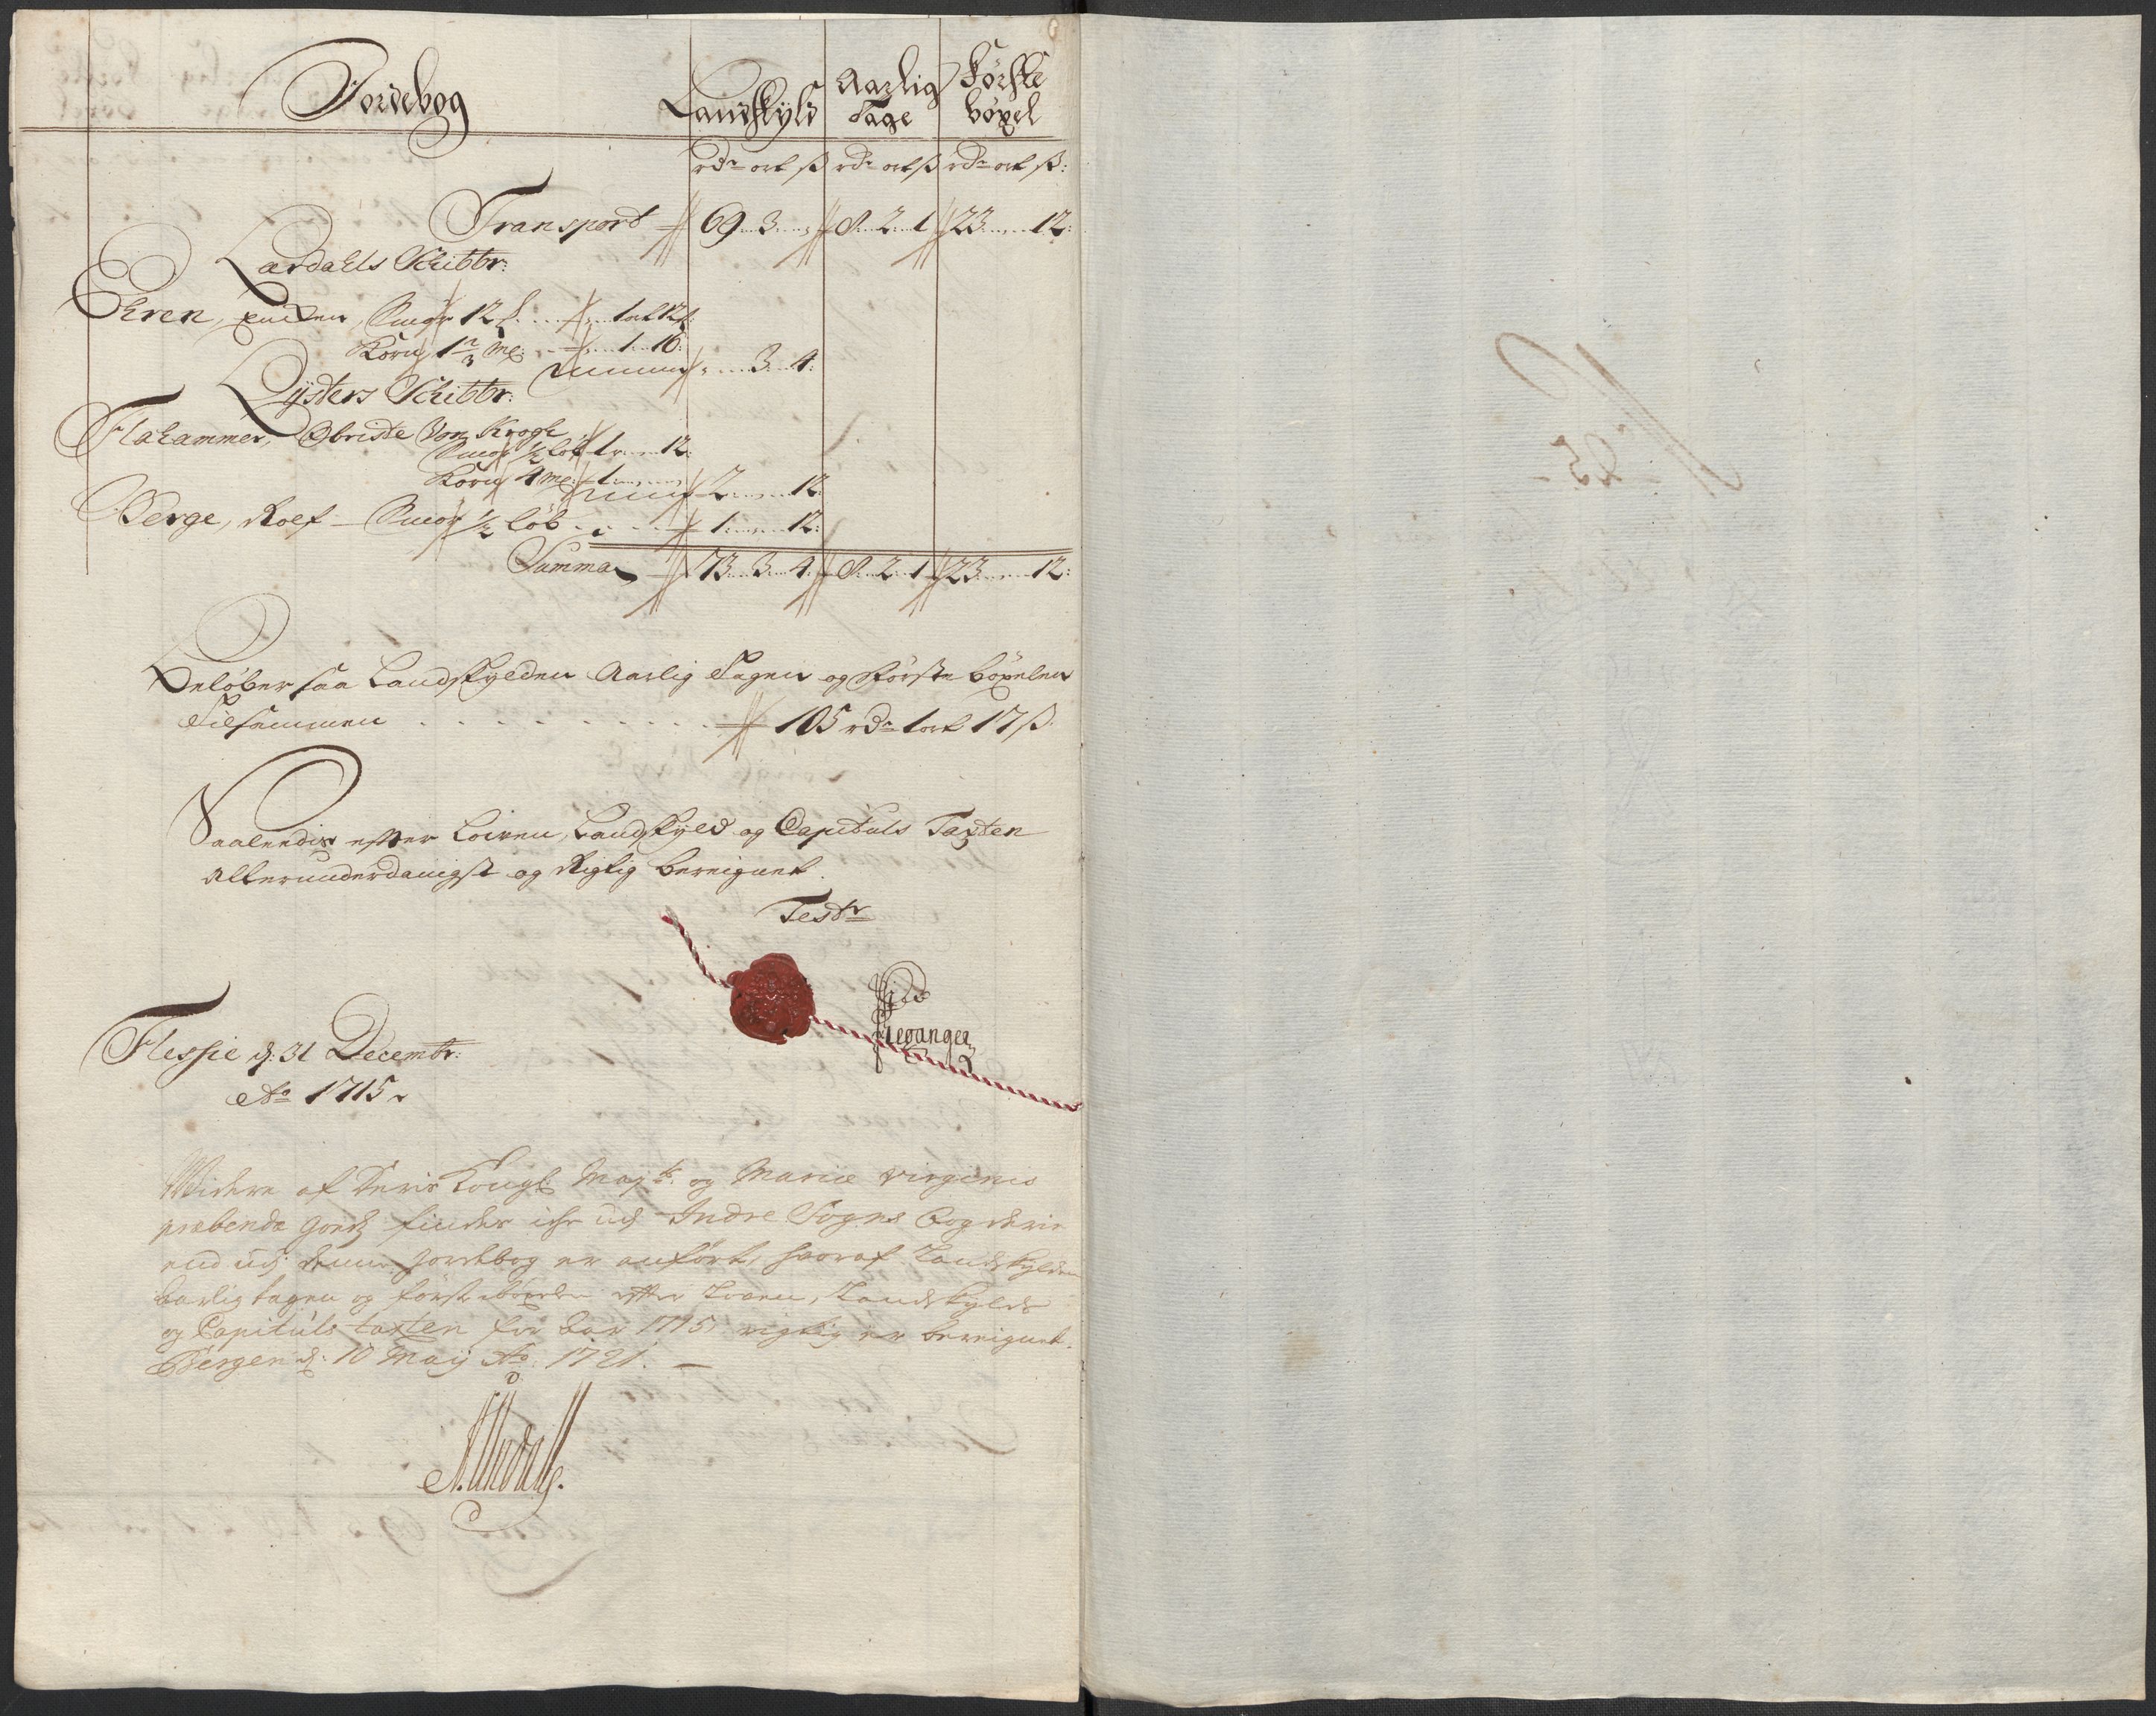 Jordebog
Landskyld
Aarlig Tage
Første bøxel
rdr ort ß rdr ort ß rdr ort ß:
Transport 69 3 „ 8 2 1 23 „ 12:
Lardahls Schibbr:
Ehren, Smør 12 1 ort 12
Korn 1 2/3 Me: 1 16:
„ 3 4:
Lysters Schibbr:
Flahammer, Obriste Von Krogh
Smør 1/2 løb 1 „ 12
Korn 4 me: 1
2 „ 12:
Berge, Rolf Smør 1/2 løb 1 „ 12:
Summa 73 3 4 8 2 1 23 „ 12:
Beløber saa Landskylden Aarlig Tagen og Første bøxelen
Tilsammen 105 rdr 1 ort 17 ß
Saaledis efter Loven, Landskyld og Capituls Taxten
Allerunderdanigst og Rigtig bereignet.
Test:
Flessie d: 31 Decembr:
Ao 1715
Videre af Deris Kongl: May:ts og Mariæ virginis
præbende Godz findes ichе udj Indre Sogns Fogderie
end udj denne jordebog er anført, hvoraf Landskylden
Aarlig tagen og første bøxelen efter Loven, Landskylds
og Capituls taxten for Aar 1715 rigtig er bereignet.
Bergen d: 10 Maij Ao 1721.
No 25